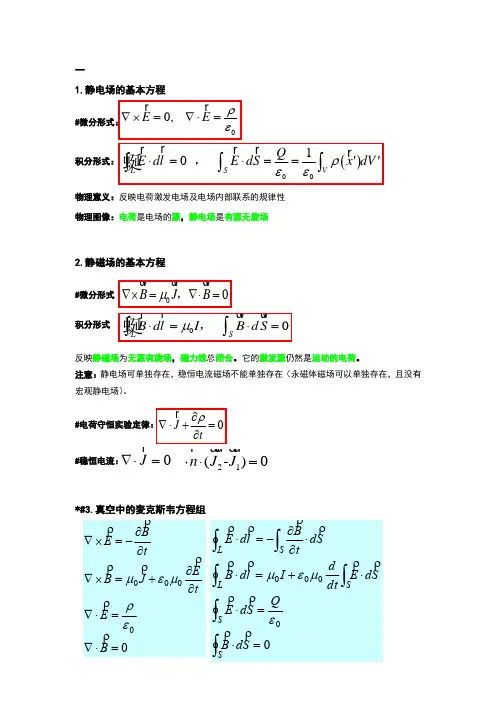 一
1.静电场的基本方程
#微分形式：∇×E⃗=0, ∇·E⃗=ρ/ε₀
积分形式：∮_L E⃗·dl⃗=0 ， ∮_S E⃗·dS⃗=Q/ε₀=1/ε₀ ∫_V ρ(x⃗′)dV′
物理意义：反映电荷激发电场及电场内部联系的规律性
物理图像：电荷是电场的源，静电场是有源无旋场
2.静磁场的基本方程
#微分形式 ∇×B⃗=μ₀J⃗，∇·B⃗=0
积分形式 ∮_L B⃗·dl⃗=μ₀I， ∮_S B⃗·dS⃗=0
反映静磁场为无源有旋场，磁力线总闭合。它的激发源仍然是运动的电荷。
注意：静电场可单独存在，稳恒电流磁场不能单独存在（永磁体磁场可以单独存在，且没有
宏观静电场）。
#电荷守恒实验定律：∇·J⃗+∂ρ/∂t=0
#稳恒电流：∇·J⃗=0 ，n⃗·(J⃗₂-J⃗₁)=0
*#3.真空中的麦克斯韦方程组
∇×E⃗=-∂B⃗/∂t ∮_L E⃗·dl⃗=-∫_S ∂B⃗/∂t·dS⃗
∇×B⃗=μ₀J⃗+ε₀μ₀ ∂E⃗/∂t ∮_L B⃗·dl⃗=μ₀I+ε₀μ₀ d/dt ∫_S E⃗·dS⃗
∇·E⃗=ρ/ε₀ ∮_S E⃗·dS⃗=Q/ε₀
∇·B⃗=0 ∮_S B⃗·dS⃗=0